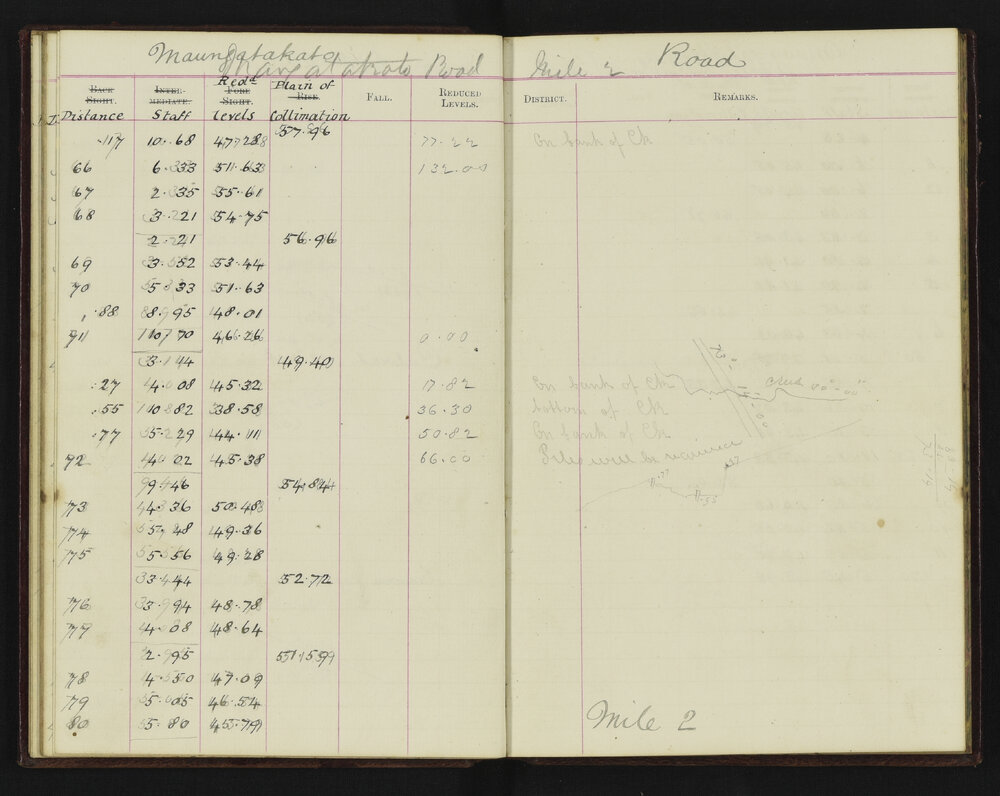 Maungatakato Road Mile 2 Road
Mangatakoto
BACK SIGHT. INTER-MEDIATE. FORE SIGHT. RISE. FALL. REDUCED LEVELS. DISTRICT. REMARKS.
Distance Staff Redd Levels Plain of Collimation
.17 10.68 47.28 57.96 77.22 On bank of Ck
66 6.33 51.63 132.00
67 2.35 55.61
68 3.21 54.75
2.21 56.96
69 3.52 53.44
70 5.33 51.63
.88 8.95 48.01
71 10.70 46.26 0.00
3.14 49.40
.27 4.08 45.32 17.82 On bank of Ck Creek
.55 10.82 38.58 36.30 bottom of Ck
.77 5.29 44.11 50.82 On bank of Ck
72 4.02 45.38 66.00 Piles will be required
9.46 54.84
73 4.36 50.48
74 5.48 49.36
75 5.56 49.28
3.44 52.72
76 3.94 48.78
77 4.08 48.64
2.95 51.59
78 4.50 47.09
79 5.05 46.54
80 5.80 45.79
Mile 2